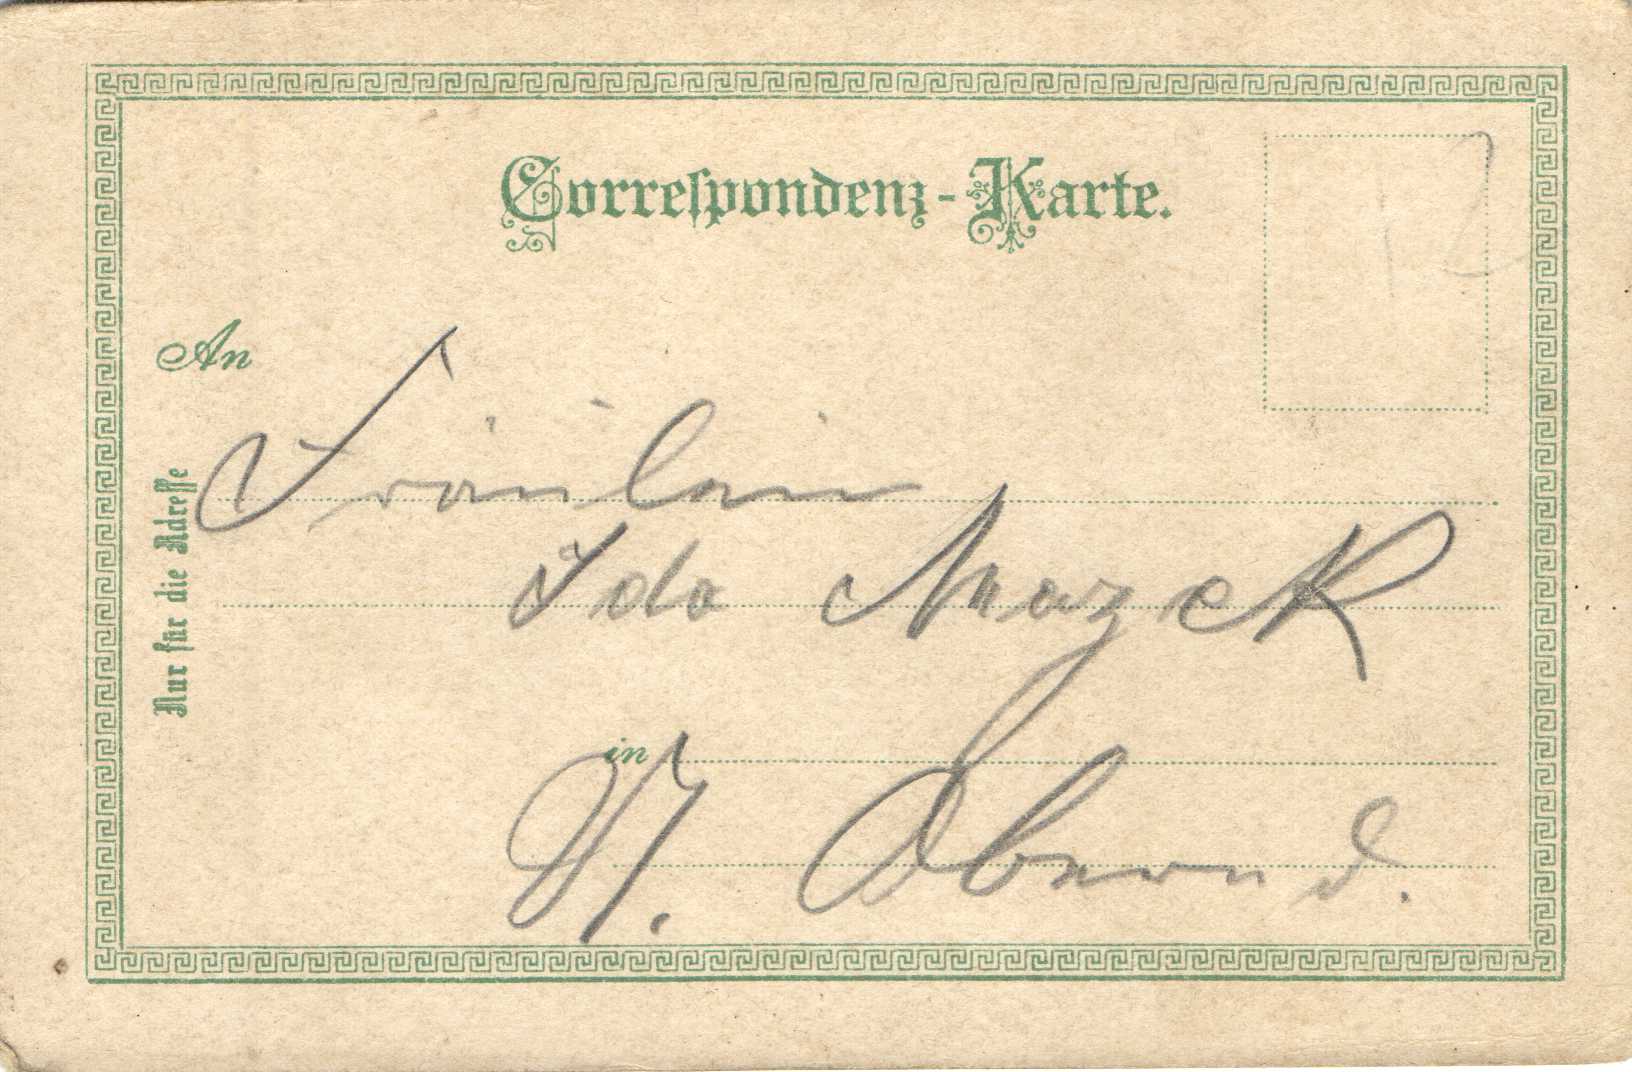 Correspondenz-Karte.
An
Nur für die Adresse
Fräulein
Ida Mazek
in
Obernd.